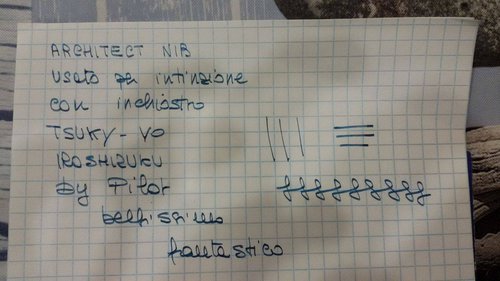 ARCHITECT NIB
usato per intinzione
con inchiostro
TSUKY-YO
IROSHIZUKU
By Pilot
bellissimo
fantastico